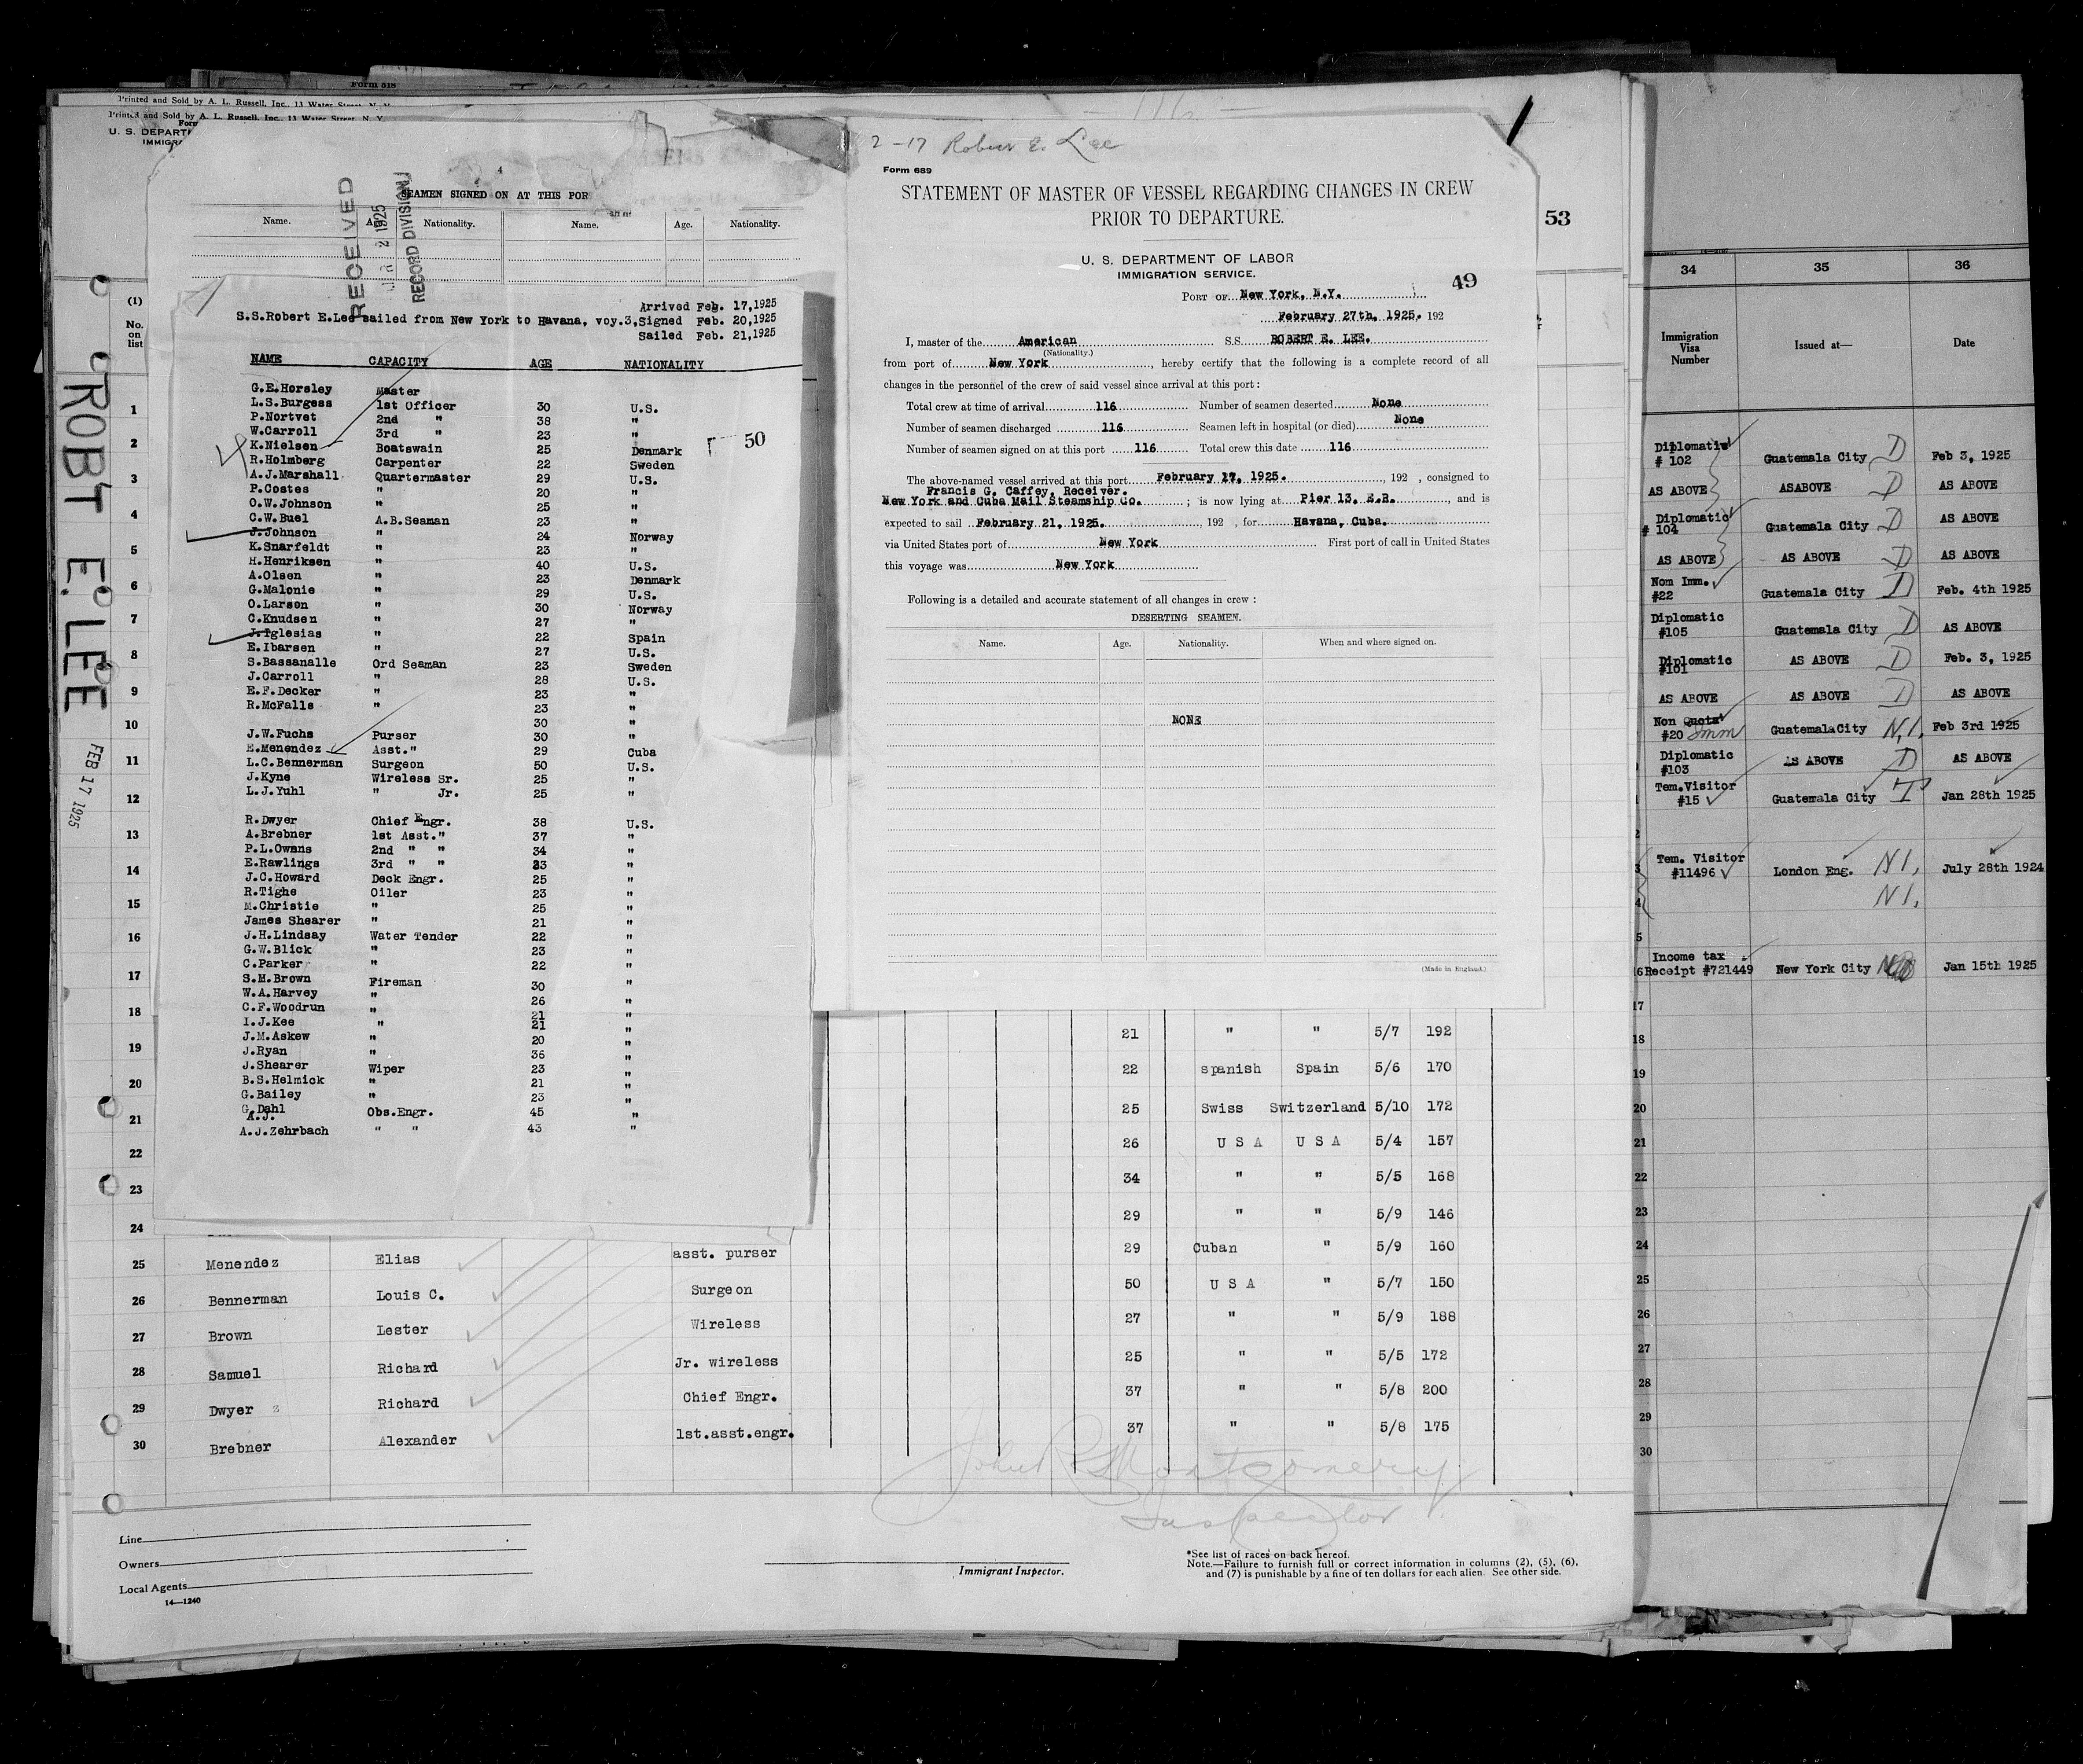 Form 518
Printed and Sold by A. L. Russell, Inc., 13 Water Street, N. Y.
Printed and Sold by A. L. Russell, Inc., 13 Water Street, N. Y.
Form
U. S. DEPART
IMMIGR
4
SEAMEN SIGNED ON AT THIS POR
Name. Age. Nationality. Name. Age. Nationality.
RECEIVED
2 1925
RECORD DIVISION
Arrived Feb. 17,1925
S.S.Robert E.Lee sailed from New York to Havana, voy.3,Signed Feb. 20,1925
Sailed Feb. 21,1925
NAME CAPACITY AGE NATIONALITY
G.E.Horsley Master
L.S.Burgess 1st Officer 30 U.S.
P.Nortvet 2nd " 38 "
W.Carroll 3rd " 23 "
K.Nielsen Boatswain 25 Denmark
R.Holmberg Carpenter 22 Sweden
A.J.Marshall Quartermaster 29 U.S.
P.Costes " 20 "
O.W.Johnson " 25 "
C.W.Buel A.B.Seaman 23 "
J.Johnson " 24 Norway
K.Snarfeldt " 23 "
H.Henriksen " 40 U.S.
A.Olsen " 23 Denmark
G.Malonie " 29 U.S.
O.Larson " 30 Norway
C.Knudsen " 27 "
J.Iglesias " 22 Spain
E.Ibarsen " 27 U.S.
S.Bassanalle Ord Seaman 23 Sweden
J.Carroll " 28 U.S.
E.F.Decker " 23 "
R.McFalls " 23 "
30 "
J.W.Fuchs Purser 30 "
E.Menendez Asst." 29 Cuba
L.C.Bennerman Surgeon 50 U.S.
J.Kyne Wireless Sr. 25 "
L.J.Yuhl " Jr. 25 "
R.Dwyer Chief Engr. 38 U.S.
A.Brebner 1st Asst." 37 "
P.L.Owans 2nd " " 34 "
E.Rawlings 3rd " " 23 "
J.C.Howard Deck Engr. 25 "
R.Tighe Oiler 23 "
M.Christie " 25 "
James Shearer " 21 "
J.H.Lindsay Water Tender 22 "
G.W.Blick " 23 "
C.Parker " 22 "
S.M.Brown Fireman 30 "
W.A.Harvey " 26 "
C.F.Woodrun " 21 "
I.J.Kee " 21 "
J.M.Askew " 20 "
J.Ryan " 36 "
J.Shearer Wiper 23 "
B.S.Helmick " 21 "
G.Bailey " 23 "
G.Dahl Obs.Engr. 45 "
A.J.
A.J.Zehrbach " " 43 "
50
2-17 Robert E. Lee
Form 689
STATEMENT OF MASTER OF VESSEL REGARDING CHANGES IN CREW
PRIOR TO DEPARTURE.
U. S. DEPARTMENT OF LABOR
IMMIGRATION SERVICE.
49
PORT OF New York, N.Y.
February 27th, 1925. 192
I, master of the American S.S. ROBERT E. LEE.
(Nationality.)
from port of New York, hereby certify that the following is a complete record of all
changes in the personnel of the crew of said vessel since arrival at this port :
Total crew at time of arrival 116 Number of seamen deserted None
Number of seamen discharged 116 Seamen left in hospital (or died) None
Number of seamen signed on at this port 116 Total crew this date 116
The above-named vessel arrived at this port February 17, 1925., 192 , consigned to
Francis G. Caffey, Receiver.
New York and Cuba Mail Steamship Co. ; is now lying at Pier 13, E.R., and is
expected to sail February 21, 1925., 192 , for Havana, Cuba.
via United States port of New York First port of call in United States
this voyage was New York
Following is a detailed and accurate statement of all changes in crew :
DESERTING SEAMEN.
Name. Age. Nationality. When and where signed on.
NONE
(Made in England.)
53
ROBT E. LEE
FEB 17 1925
(1)
No.
on
list
1
2
3
4
5
6
7
8
9
10
11
12
13
14
15
16
17
18
19
20
21
22
23
24
21 " " 5/7 192
22 spanish Spain 5/6 170
25 Swiss Switzerland 5/10 172
26 U S A U S A 5/4 157
34 " " 5/5 168
29 " " 5/9 146
25 Menendez Elias asst. purser 29 Cuban " 5/9 160
26 Bennerman Louis C. Surgeon 50 U S A " 5/7 150
27 Brown Lester Wireless 27 " " 5/9 188
28 Samuel Richard Jr. wireless 25 " " 5/5 172
29 Dwyer Richard Chief Engr. 37 " " 5/8 200
30 Brebner Alexander 1st.asst.engr. 37 " " 5/8 175
John R Montgomery
Inspector
Line
Owners
Local Agents
14—1240
Immigrant Inspector.
*See list of races on back hereof.
Note.—Failure to furnish full or correct information in columns (2), (5), (6),
and (7) is punishable by a fine of ten dollars for each alien. See other side.
34 35 36
Immigration
Visa
Number Issued at— Date
Diplomatic
# 102 Guatemala City D Feb 3, 1925
AS ABOVE ASABOVE D AS ABOVE
Diplomatic
# 104 Guatemala City D AS ABOVE
AS ABOVE AS ABOVE D AS ABOVE
Nom Imm.
#22 Guatemala City D Feb. 4th 1925
Diplomatic
#105 Guatemala City D AS ABOVE
Diplomatic
#101 AS ABOVE D Feb. 3, 1925
AS ABOVE AS ABOVE D AS ABOVE
Non Quota
#20 Guatemala City N.I. Feb 3rd 1925
Diplomatic
#103 AS ABOVE D AS ABOVE
Tem.Visitor
#15 Guatemala City T Jan 28th 1925
Tem. Visitor
#11496 London Eng. N I. July 28th 1924
N I.
Income tax
Receipt #721449 New York City Jan 15th 1925
17
18
19
20
21
22
23
24
25
26
27
28
29
30